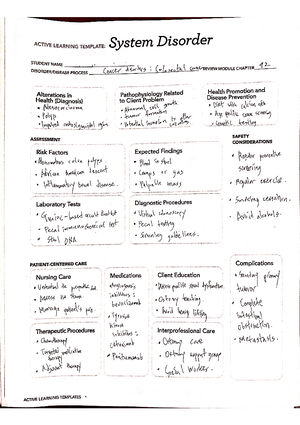 ACTIVE LEARNING TEMPLATE: System Disorder
STUDENT NAME
DISORDER/DISEASE PROCESS Cancer disorders : Colorectal cancer REVIEW MODULE CHAPTER 92
Alterations in
Health (Diagnosis)
• Adenocarcinoma
• Polyp
Pathophysiology Related
to Client Problem
• Abnormal cell growth
• tumor formation
Health Promotion and
Disease Prevention
• Diet with calcium
• Age specific cancer screening
• Genetic testing
ASSESSMENT
SAFETY
CONSIDERATIONS
Risk Factors
• Adenomatous colon polyps
• African American descent
• Inflammatory bowel disease.
Expected Findings
• Blood in stool
• Cramps or gas
• Palpable mass
• Regular preventive
screening
• Regular exercise.
• Smoking cessation.
• Avoid alcohol.
Laboratory Tests
• Fecal immunochemical test
• Stool DNA
Diagnostic Procedures
• Virtual colonoscopy
• Fecal testing
• Screening guidelines.
PATIENT-CENTERED CARE
Complications
Nursing Care
Medications
• angiogenesis
inhibitors :
bevacizumab
• tyrosine
kinase
inhibitors :
cetuximab
• Panitumumab
Client Education
• Ostomy teaching.
• Avoid heavy lifting
• primary
tumor
• Complete
intestinal
obstruction.
• Metastasis.
Therapeutic Procedures
• Chemotherapy
• Targeted
therapy
• Adjuvant therapy
Interprofessional Care
• Ostomy care
• Ostomy support group
• Social Worker.
ACTIVE LEARNING TEMPLATES